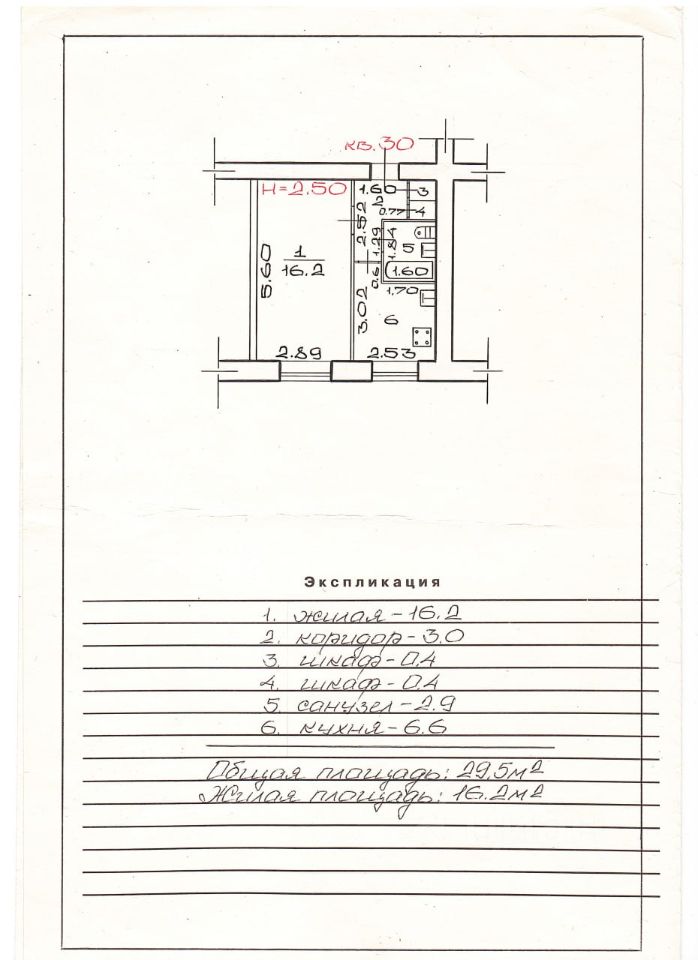 кв. 30
H=2.50
1.60
3
2
0.77
4
2.52
1.29
1.84
5
5.60
1
16.2
0.6
1.60
1.70
3.02
6
2.89
2.53
Экспликация
1. жилая - 16.2
2. коридор - 3.0
3. шкаф - 0.4
4. шкаф - 0.4
5. санузел - 2.9
6. кухня - 6.6
Общая площадь: 29,5 м2
Жилая площадь: 16.2 м2